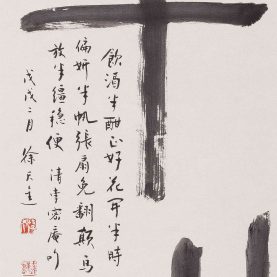 飲酒半酣正好花開半時
偏妍半帆張扇免翻顛馬
放半繮穩便 清李密庵句
戊戌二月 徐天進